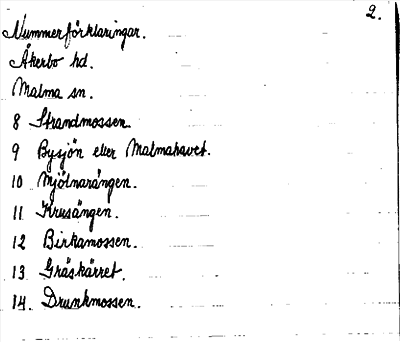 2.
Nummerförklaringar.
Åkerbo hd.
Malma sn.
8 Strandmossen.
9 Bysjön eller Malmahavet.
10 Mjölnarängen.
11 Krusängen.
12 Birkamossen.
13 Gräskärret.
14. Drunkmossen.